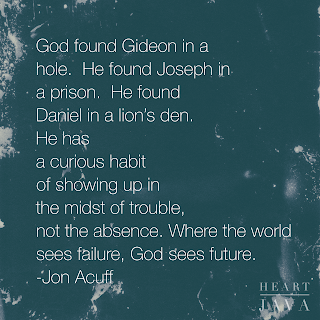 God found Gideon in a
hole. He found Joseph in
a prison. He found
Daniel in a lion's den.
He has
a curious habit
of showing up in
the midst of trouble,
not the absence. Where the world
sees failure, God sees future.
-Jon Acuff
HEART
JAVA